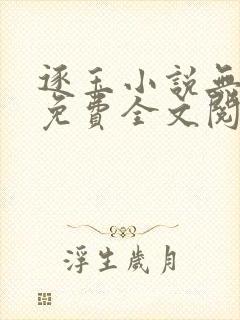 逐玉小說無
免費全文閱
浮生歲月